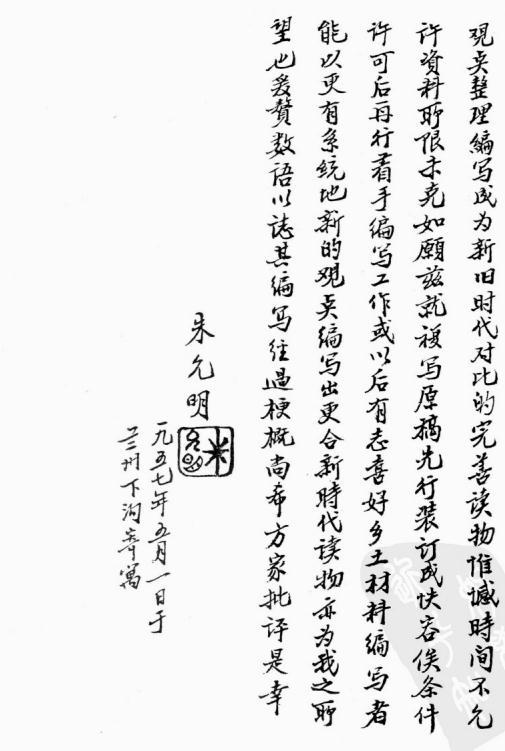 观点整理编写成为新旧时代对比的完善读物惟憾時间不允
许资料所限未克如願兹就複写原稿先行装订成快容俟条件
许可后再行着手编写工作或以后有志喜好乡土材料编写者
能以更有系统地新的观点编写出更合新時代读物亦为我之所
望也爰赘数语以誌其编写经過梗概尚希方家批评是幸
朱允明
一九五七年五月一日于
兰州下沟寄寓